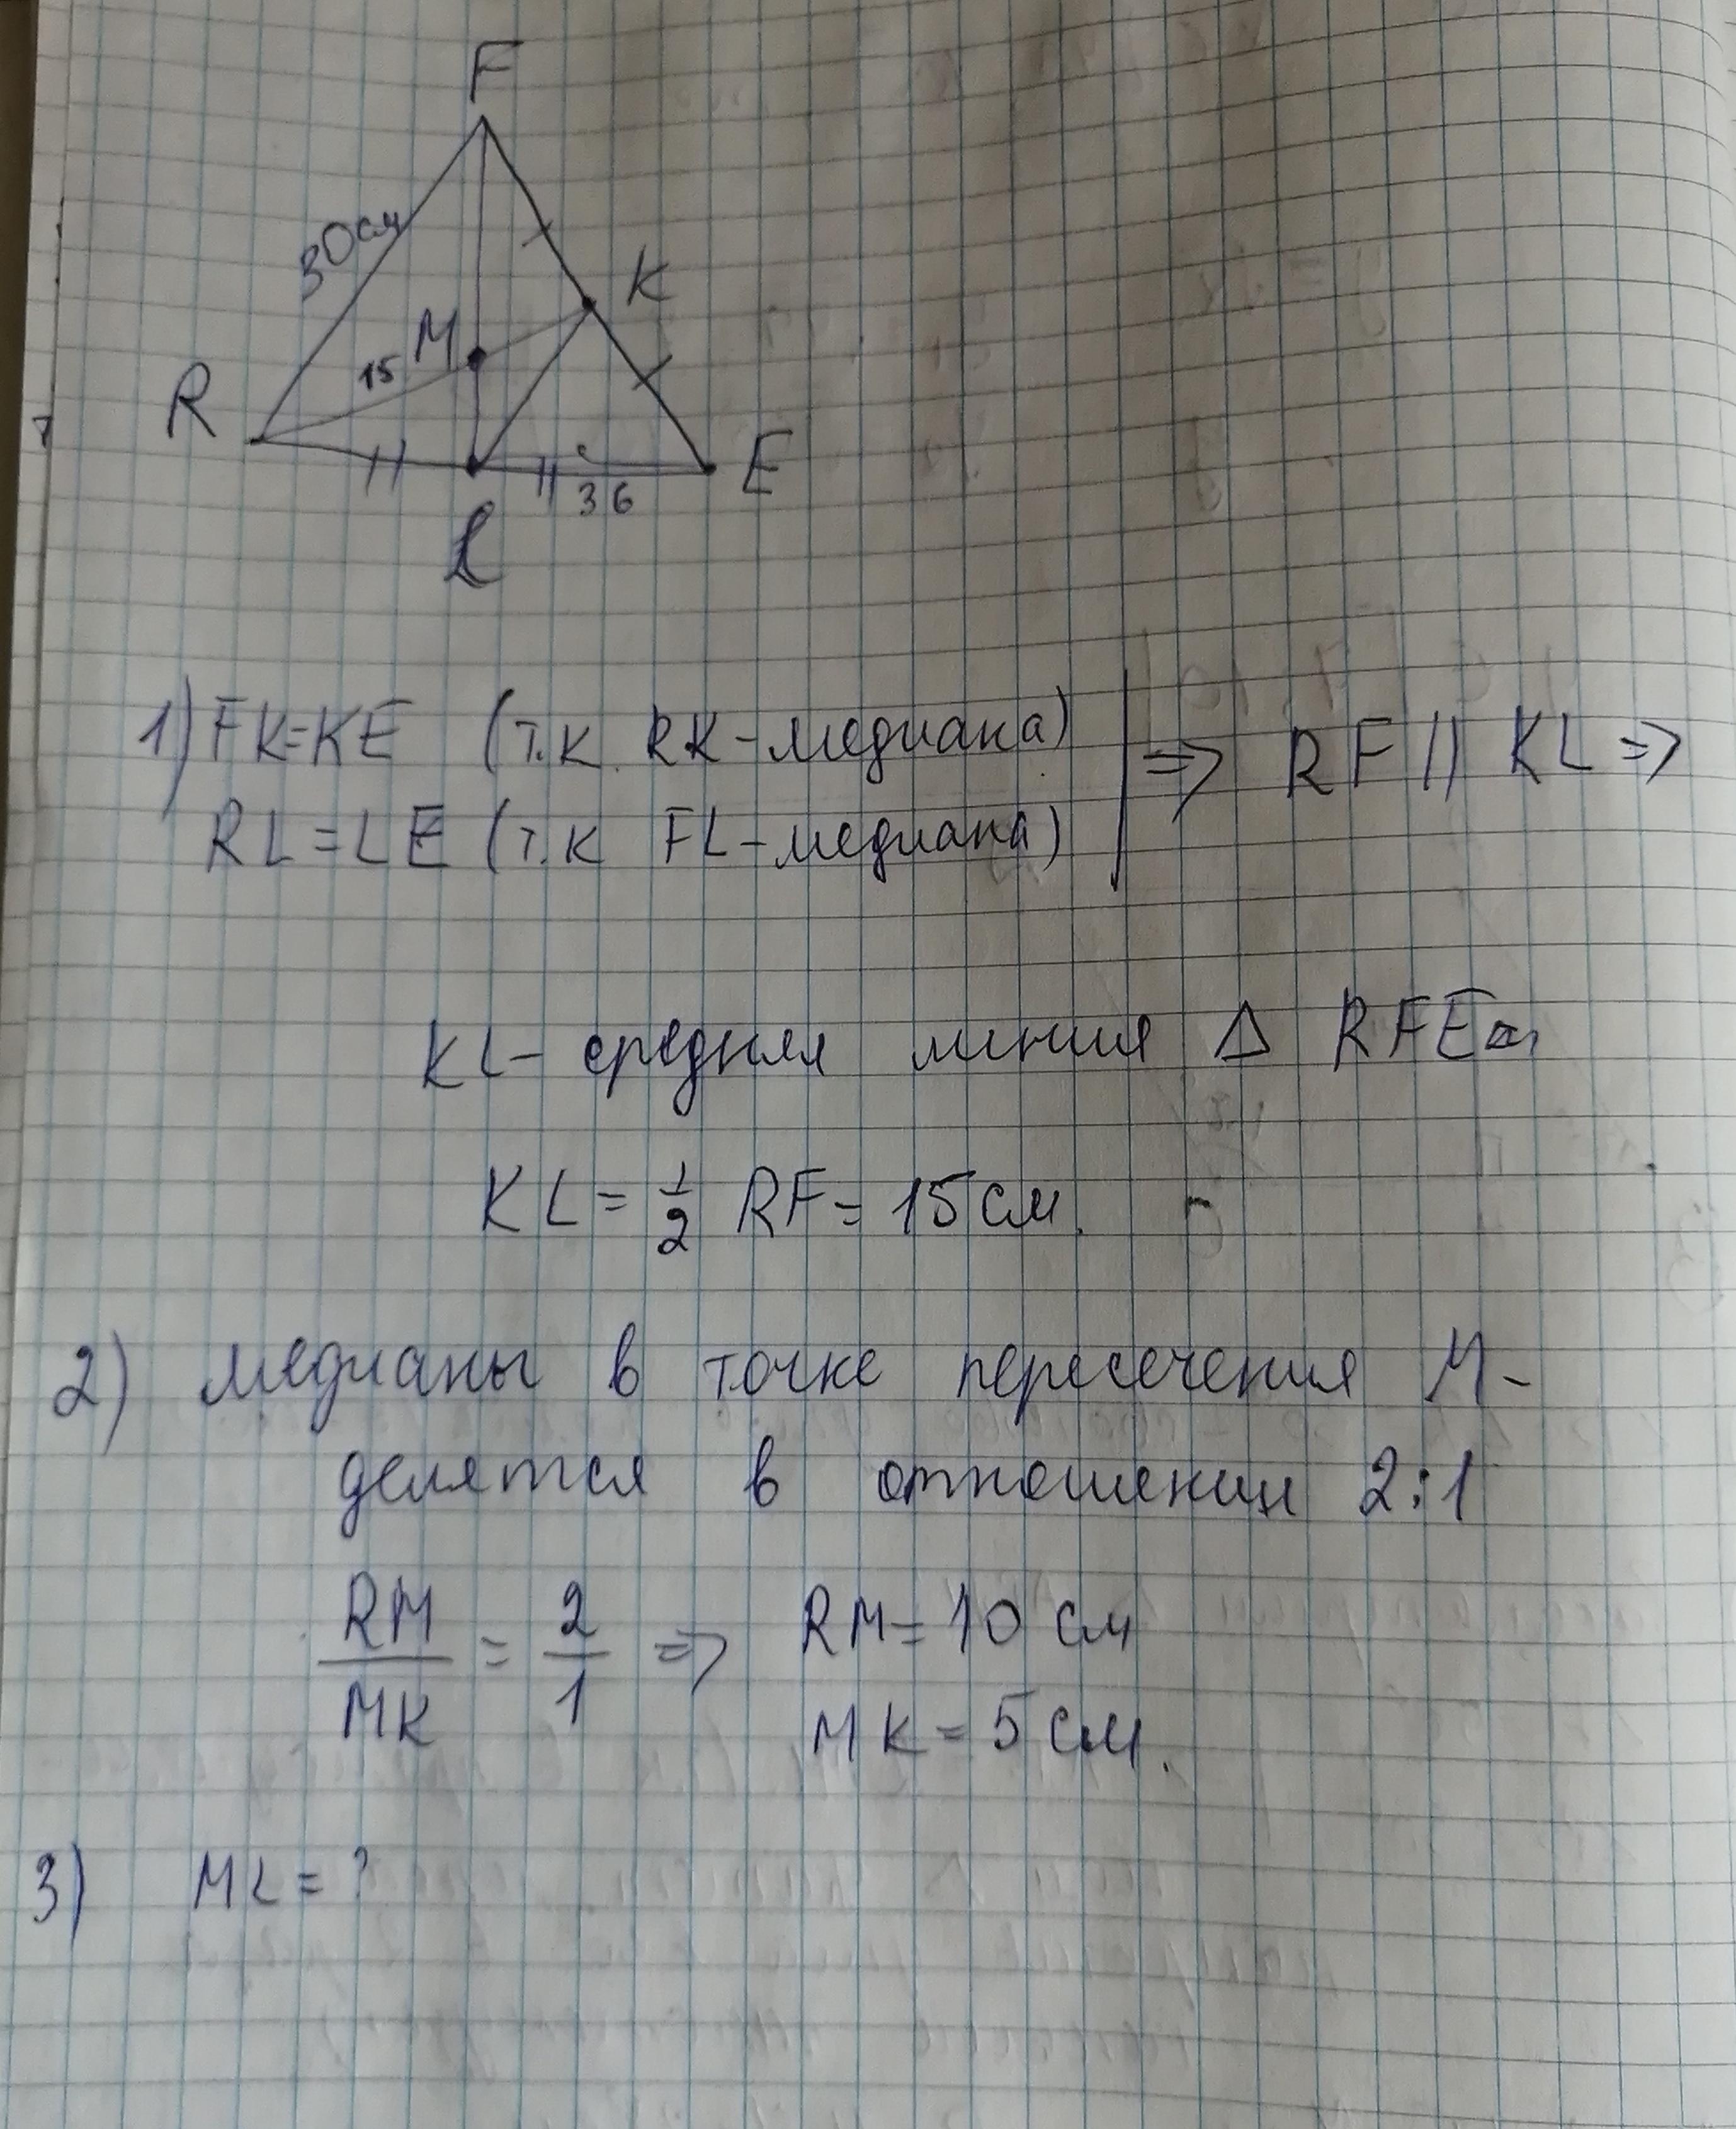 F
30см
K
M
15
R
E
36
L
1) FK=KE (т.к. RK-медиана)
RL=LE (т.к FL-медиана)
=> RF || KL =>
KL- средняя линия Δ RFE
KL= 1/2 RF= 15см.
2) медианы в точке пересечения М-
делятся в отношении 2:1
RM/MK = 2/1 => RM= 10 см
MK= 5см.
3) ML= ?